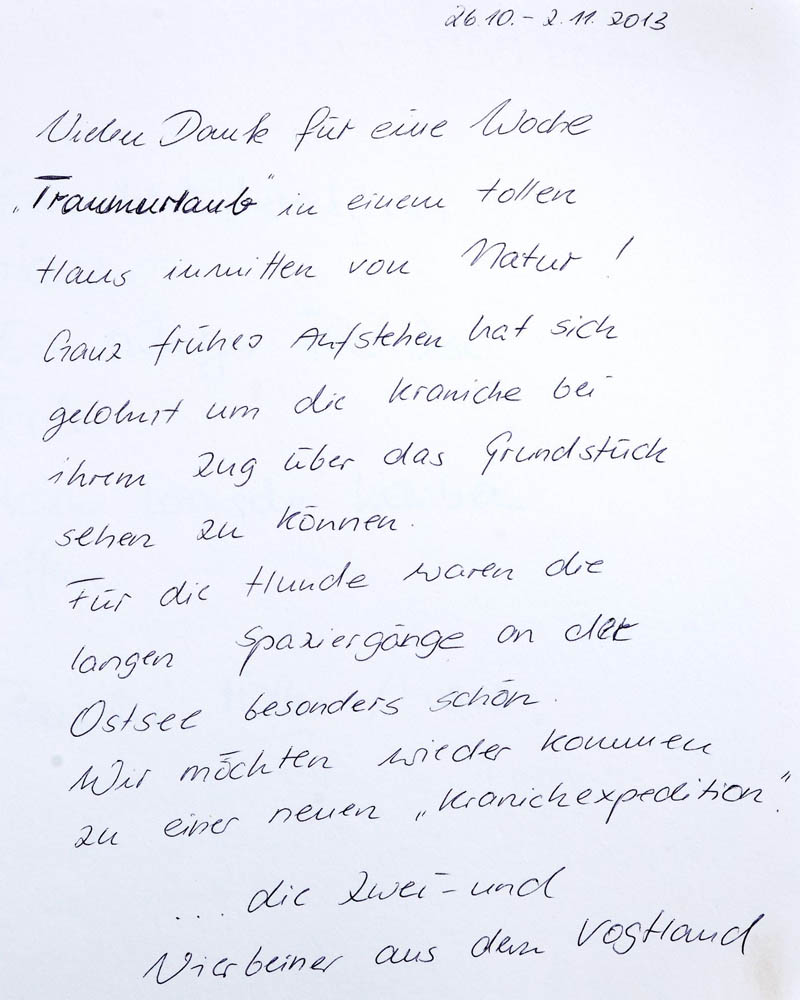 26.10. - 2.11. 2013
Vielen Dank für eine Woche
„Traumurlaub“ in einem tollen
Haus inmitten von Natur!
Ganz frühes Aufstehen hat sich
gelohnt um die Kraniche bei
ihrem Zug über das Grundstück
sehen zu können.
Für die Hunde waren die
langen Spaziergänge an der
Ostsee besonders schön.
Wir möchten wieder kommen
zu einer neuen „Kranichexpedition“.
... die Zwei- und
Vierbeiner aus dem Vogtland